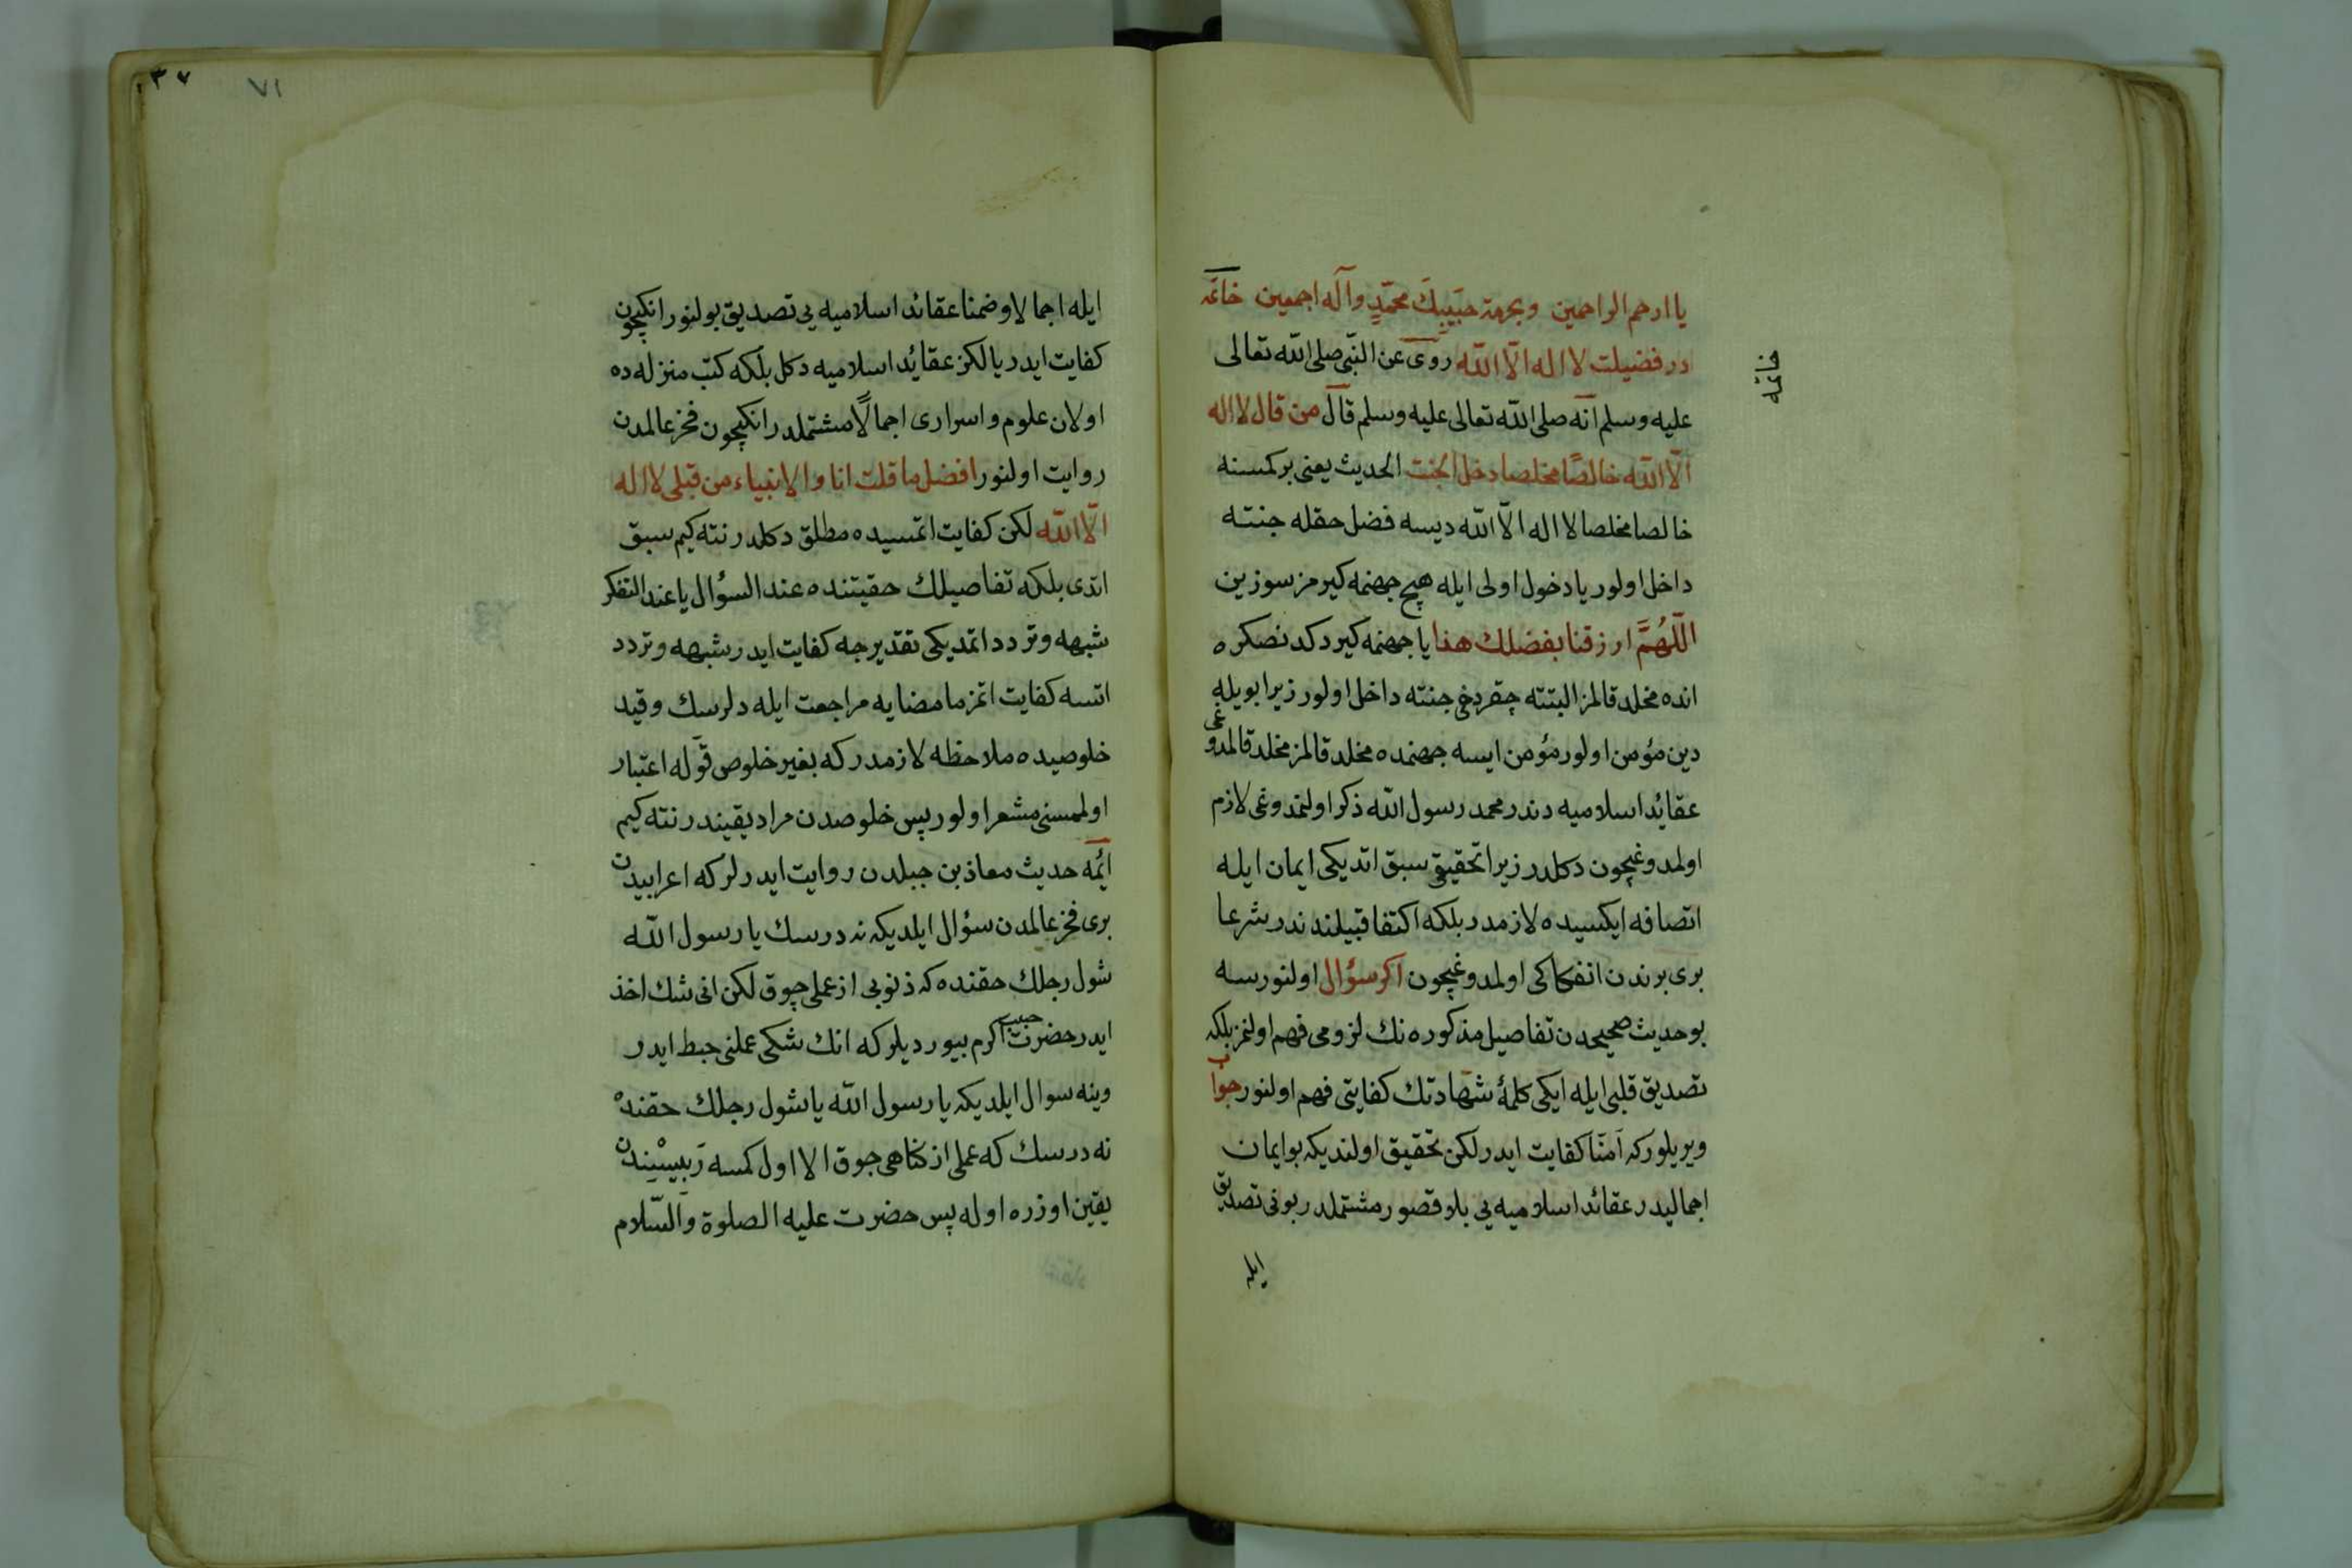 يا ارحم الراحمين وبحرمة حبيبك محمّد وآله اجمعين خاتمه
در فضيلت لا اله الّا اللّه روى عن النّبى صلى اللّه تعالى
خاتمه
عليه وسلم انّه صلى اللّه تعالى عليه وسلم قال من قال لا اله
الّا اللّه خالصًا مخلصا دخل الجنت الحديث يعنى بركمسنه
خالصا مخلصا لا اله الّا اللّه ديسه فضل حقله جنته
داخل اولور يا دخول اولى ايله هيچ جهنمه كيرمز سوزين
اللّهُمَّ ارزقنا بفضلك هذا يا جهنمه كيردكدنصكره
انده مخلد قالمز البتته چقردخى جنته داخل اولور زيرا بويله
دين مؤمن اولور مؤمن ايسه جهنمده مخلد قالمز مخلد قالمدوغى
عقائد اسلاميه دندر محمد رسول اللّه ذكر اولنمدوغى لازم
اولمدوغيچون دكلدر زيرا تحقيقى سبق اتديكى ايمان ايله
اتصافه ايكسيده لازمدر بلكه اكتفا قبيلندندر شرعا
برى برندن انفكاكى اولمدوغيچون اكر سؤال اولنورسه
بو حديث صحيحدن تفاصيل مذكوره نك لزومى فهم اولنمز بلكه
تصديق قلبى ايله ايكى كلمهٔ شهادتك كفايتى فهم اولنور جواب
ويريلوركه آمنّا كفايت ايدر لكن تحقيق اولنديكه بو ايمان
اجماليدر عقائد اسلاميه يى بلا قصور مشتملدر بونى تصديق
ايله
٧١
٣٧
ايله اجمالا وضمنا عقائد اسلاميه يى تصديق بولنور انكيچون
كفايت ايدر يالكز عقائد اسلاميه دكل بلكه كتب منزله ده
اولان علوم و اسرارى اجمالًا مشتملدر انكيچون فخر عالمدن
روايت اولنور افضل ما قلت انا والانبياء من قبلى لا اله
الّا اللّه لكن كفايت اتمسيده مطلق دكلدر نته كيم سبق
اتدى بلكه تفاصيلك حقيتنده عند السؤال يا عند التفكر
شبهه وتردد اتمديكى تقديرجه كفايت ايدر شبهه وتردد
اتسه كفايت اتمز مامضايه مراجعت ايله دلرسك وقيد
خلوصيده ملاحظه لازمدر كه بغير خلوص قوله اعتبار
اولممسنى مشعر اولور پس خلوصدن مراد يقيندر نته كيم
ائمّه حديث معاذ بن جبلدن روايت ايدرلر كه اعرابيدن
برى فخر عالمدن سؤال ايلديكه نه درسك يا رسول اللّه
شول رجلك حقنده كه ذنوبى از عملى چوق لكن انى شك اخذ
ايدر حضرت حبيب اكرم بيورديلر كه انك شكى عملنى حبط ايدر
وينه سوال ايلديكه يا رسول اللّه يا شول رجلك حقنده
نه درسك كه عملى از كناهى جوق الا اول كمسه رَبِّيسْندن
يقين اوزره اوله پس حضرت عليه الصلوة والسّلام